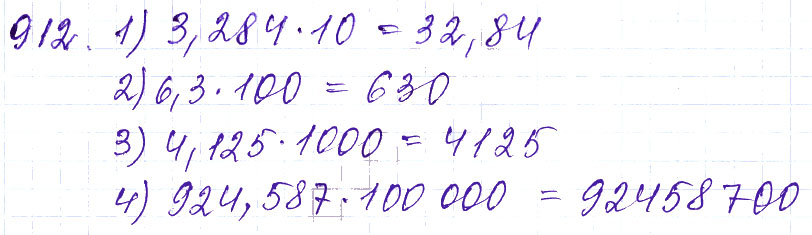 912. 1) 3,284·10 = 32,84
2) 6,3·100 = 630
3) 4,125·1000 = 4125
4) 924,587·100 000 = 92458700